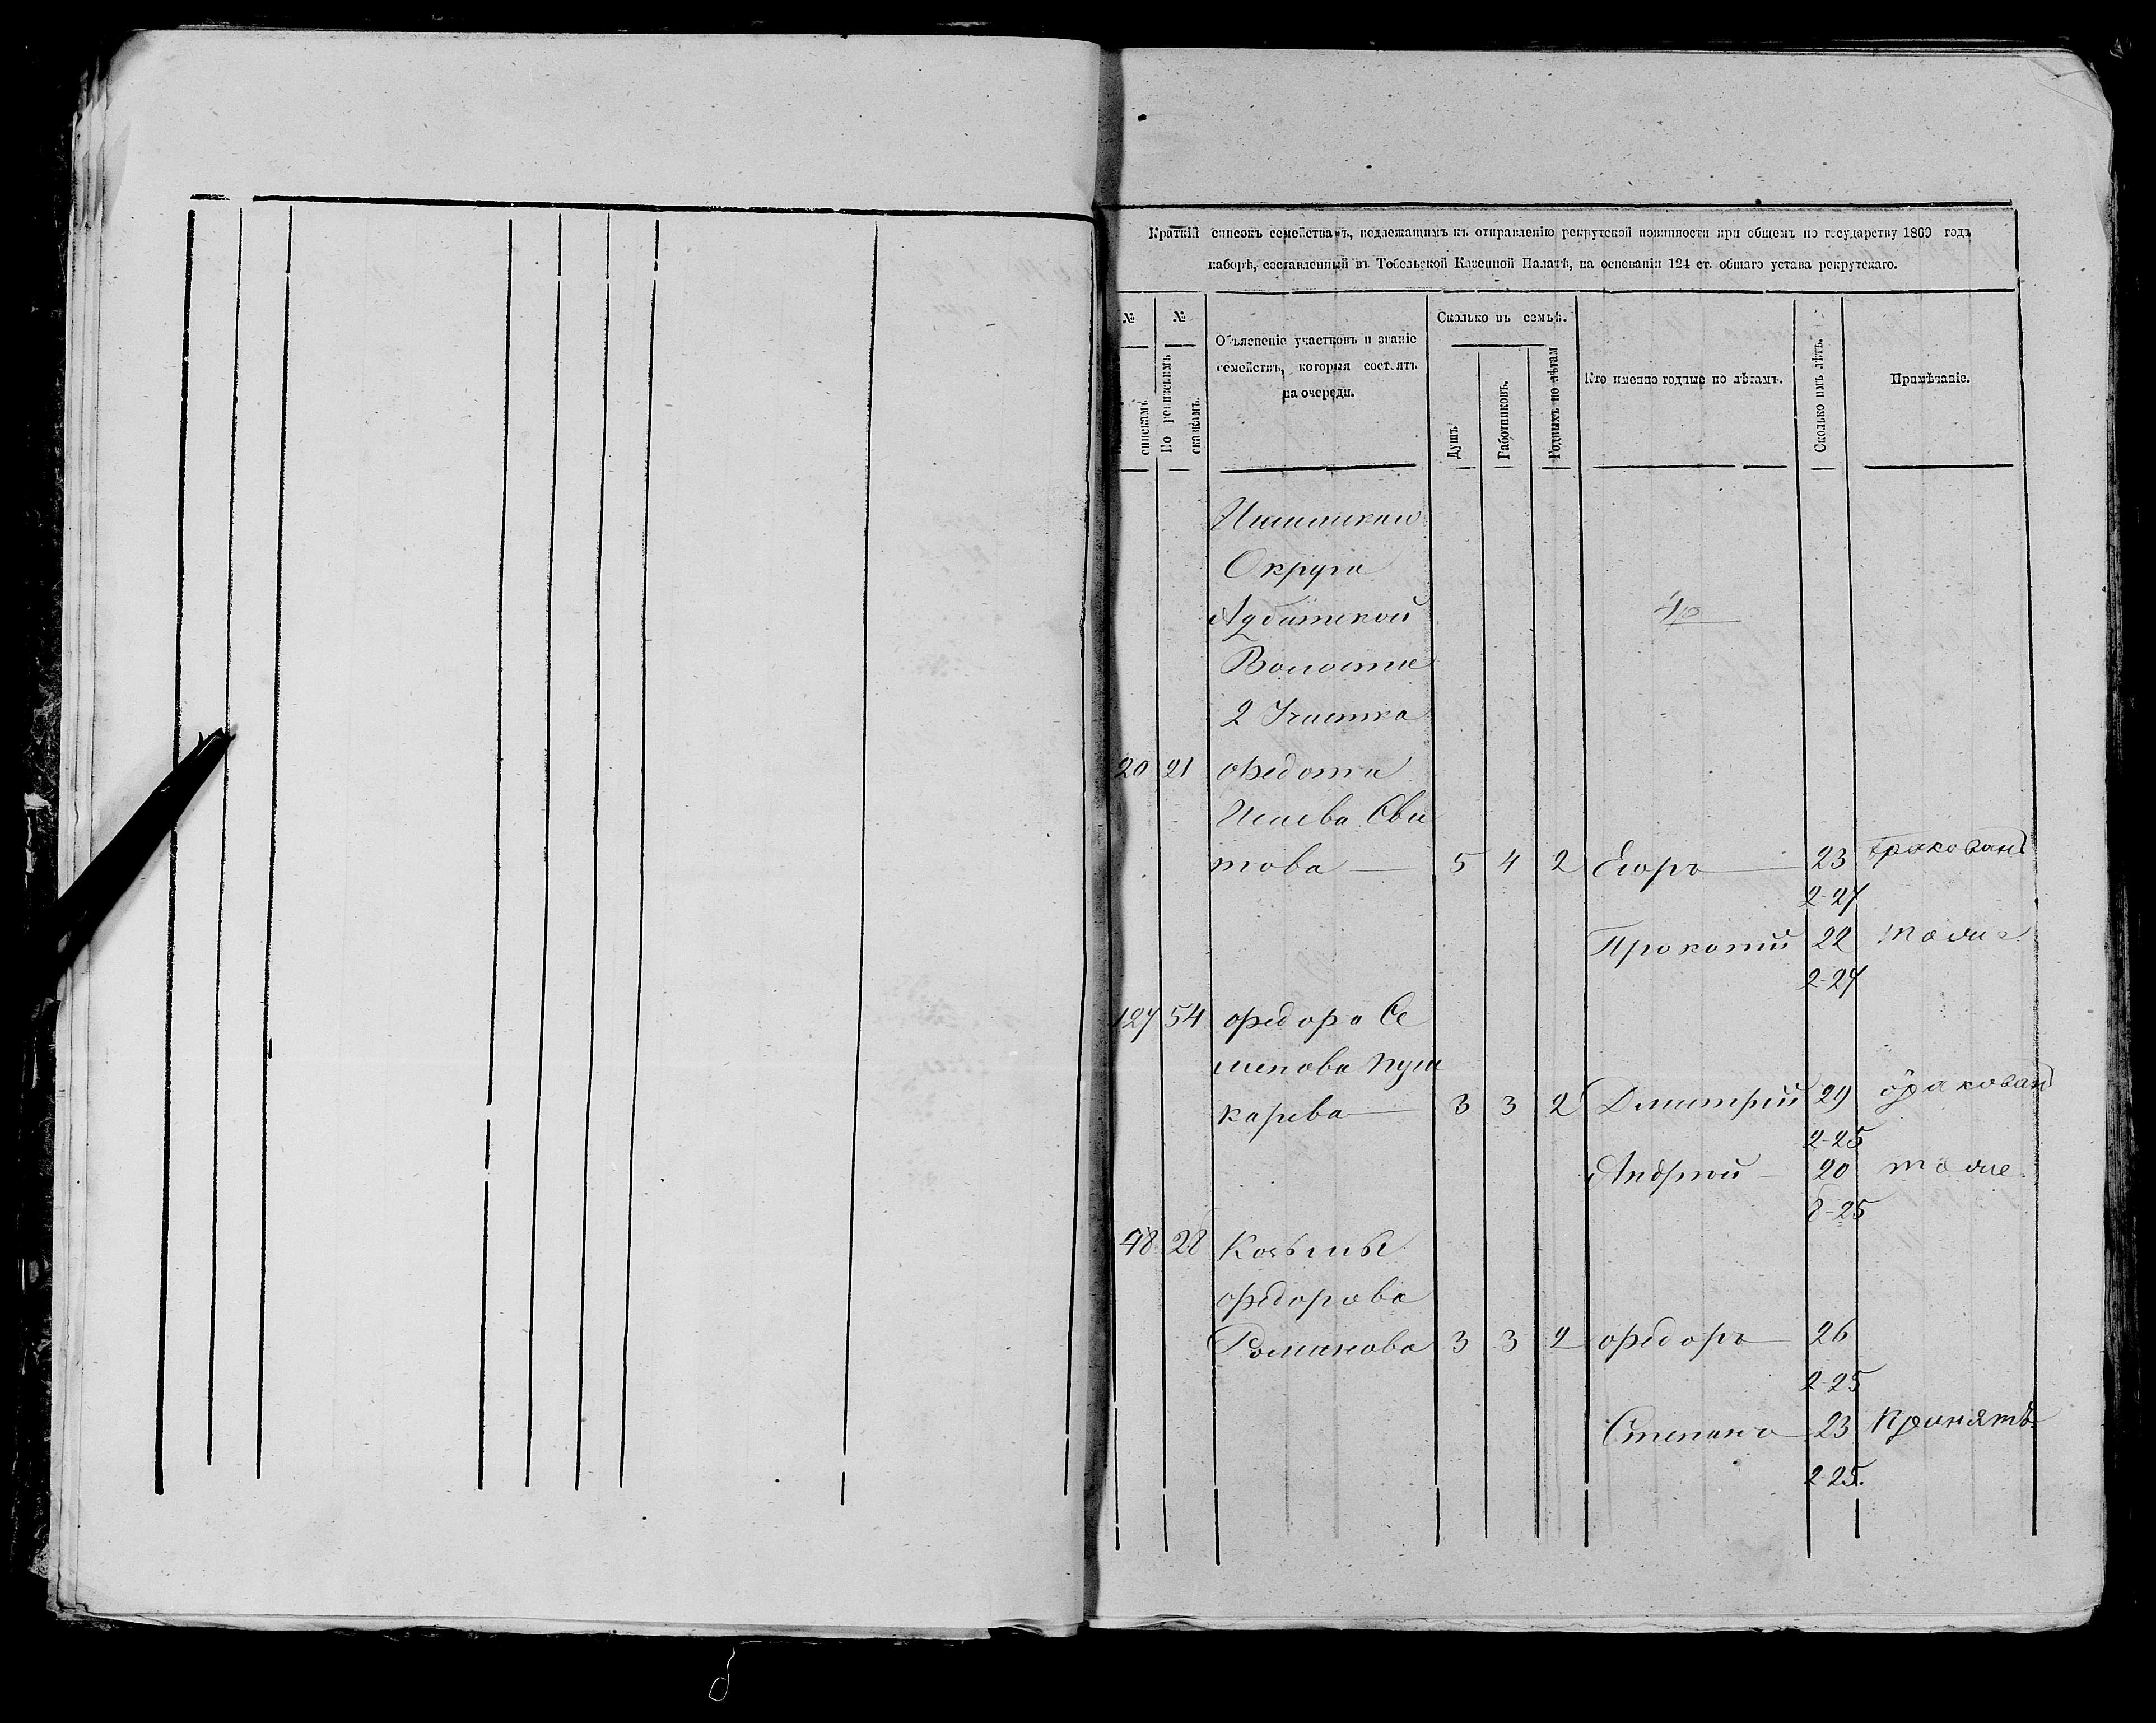 Краткій списокъ семействамъ, подлежащимъ къ отправленію рекрутской повинности при общемъ по государству 1860 года
наборѣ, составленный въ Тобольской Казенной Палатѣ, на основаніи 124 ст. общаго устава рекрутскаго.
№ спискамъ.
№ По ревизскимъ сказкамъ.
Объясненіе участковъ и званіе
семействъ, которыя состоятъ
на очереди.
Сколько въ семьѣ.
Душъ
Работниковъ.
Годныхъ по лѣтам
Кто именно годные по лѣтамъ.
Сколько имъ лѣтъ.
Примѣчаніе.
Ишимскаго
Округа
Абатской
Волости
2 Участка
20 21 Федота
Исаева Сви
това — 5 4 2 Егоръ — 23 бракованъ
2-27
Прокопій 22 тоже
2-27
127 54 Федора Се
менова Пуш
карева — 3 3 2 Дмитрій 29 бракованъ
2-25
Андрей — 20 тоже
6-25
48 28 Козьмы
Федорова
Романова 3 3 2 Федоръ — 26
2-25
Степанъ 23 Принятъ
2-25.